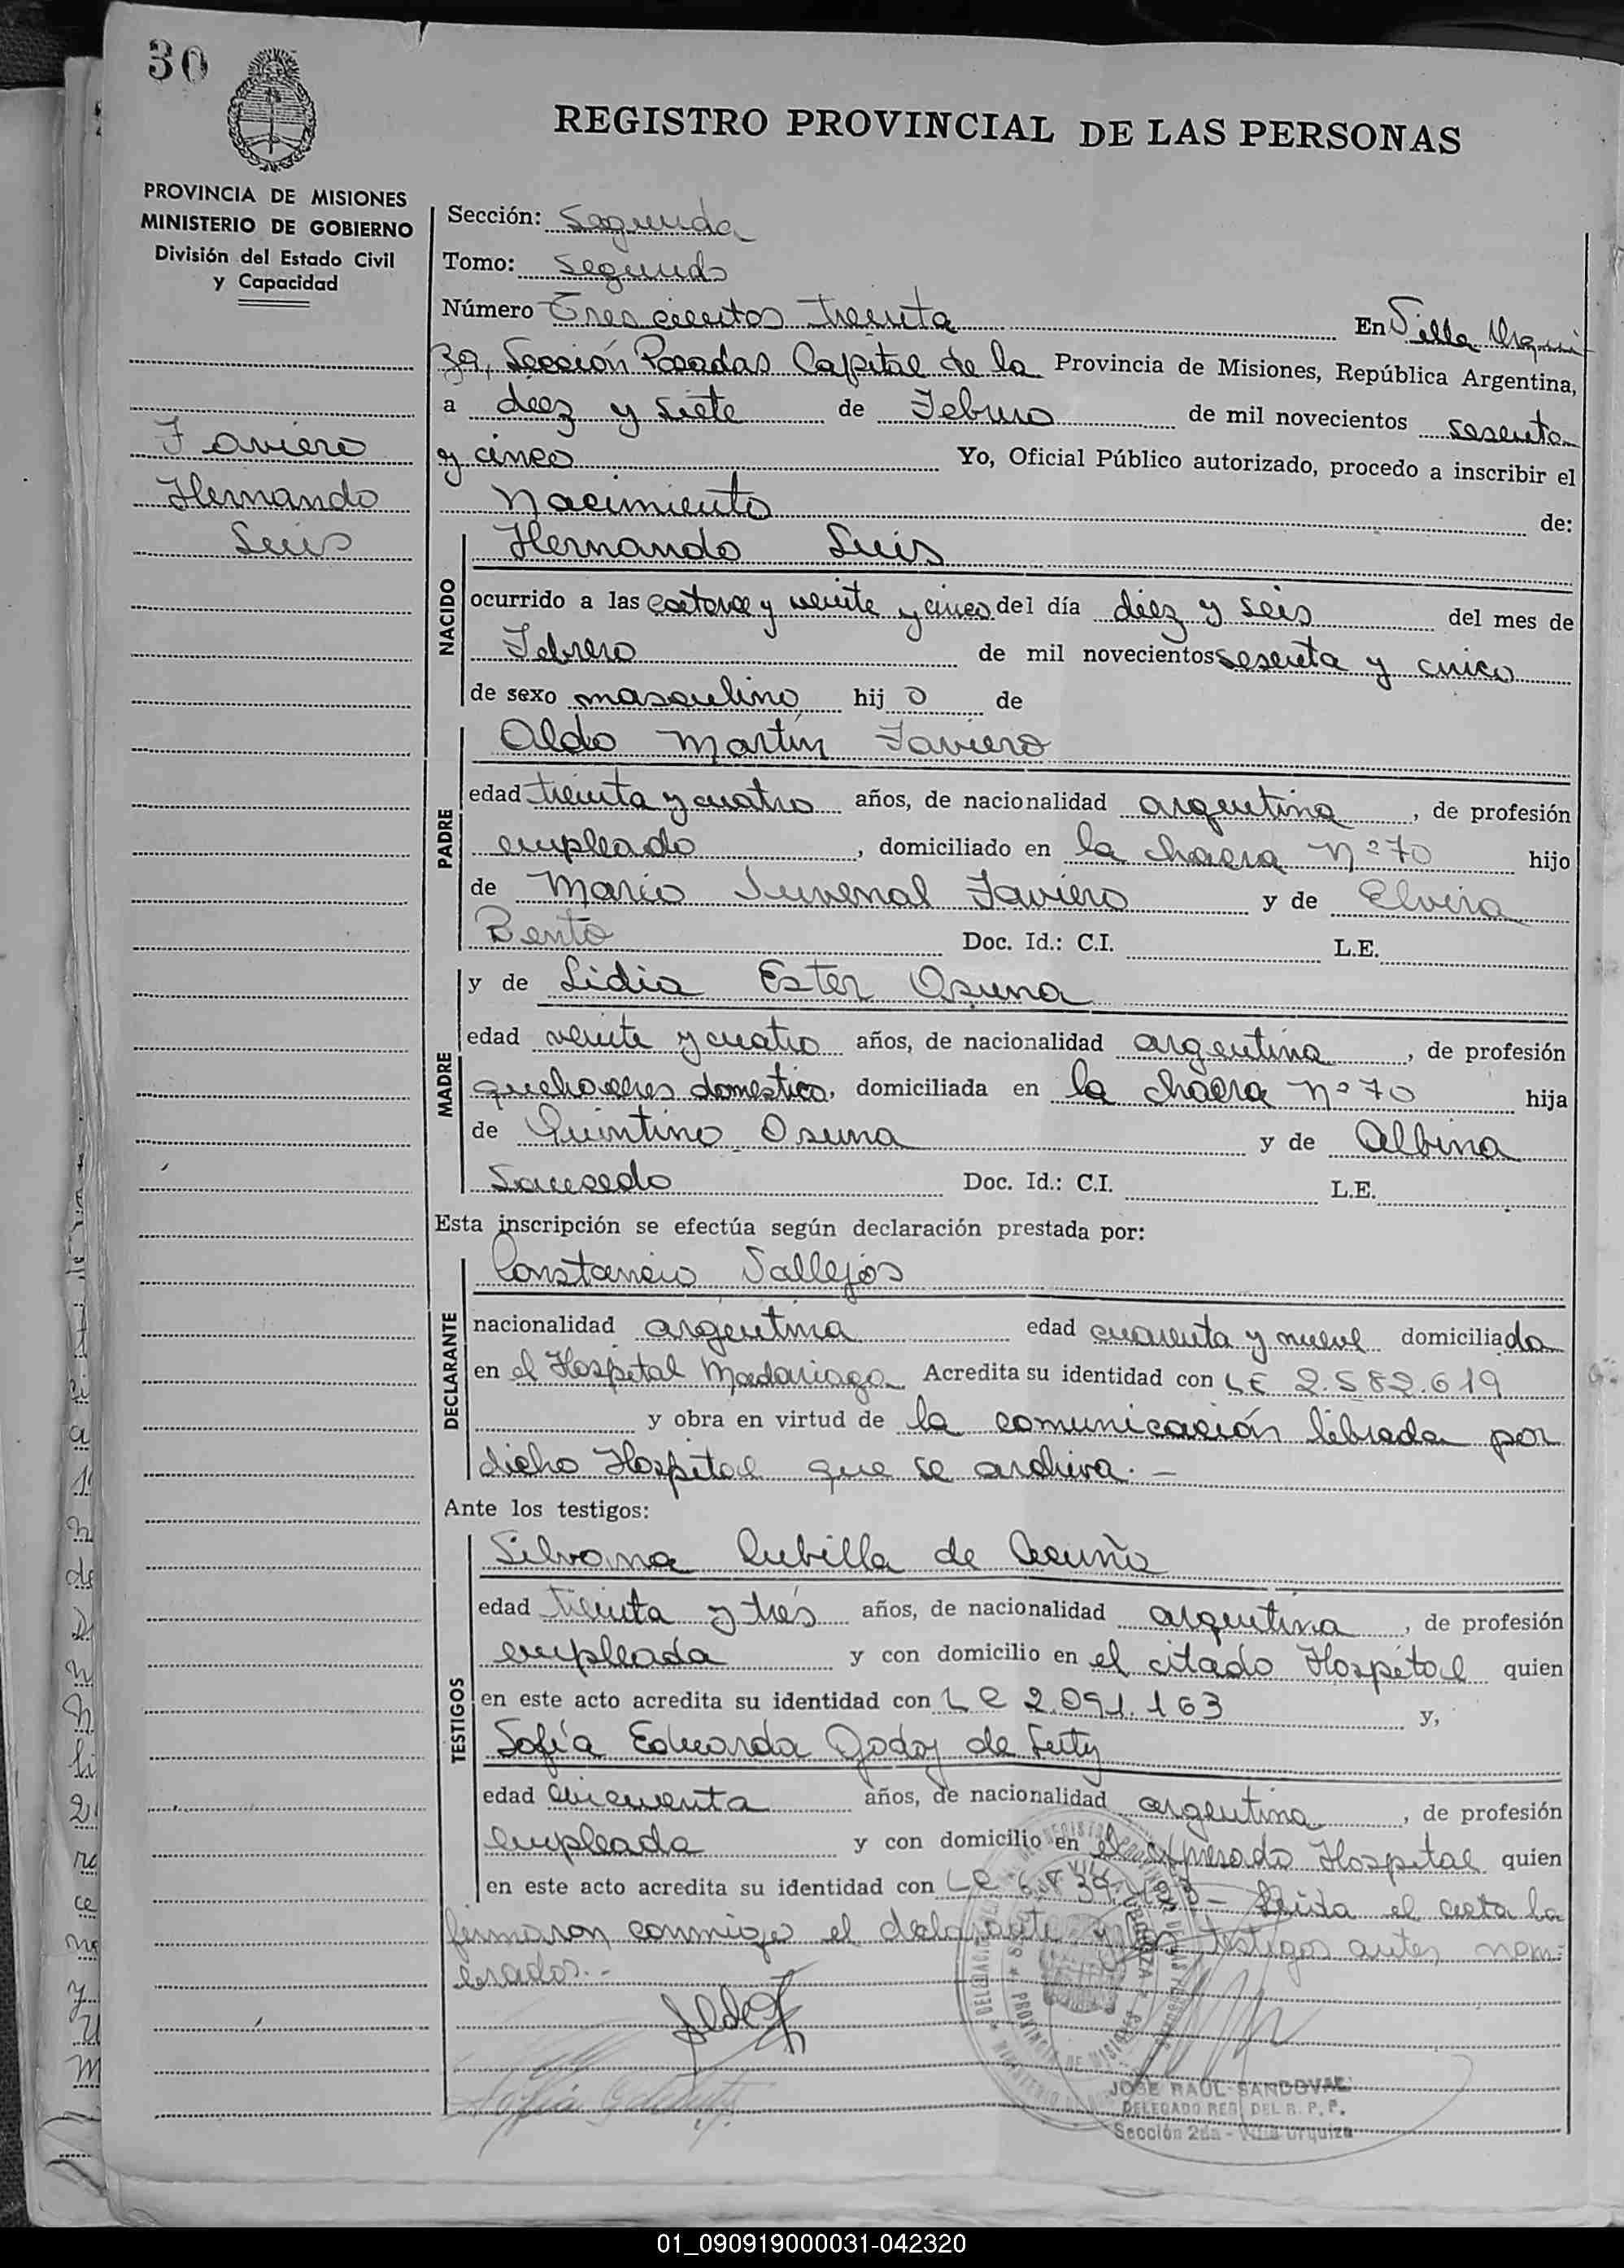 30
REGISTRO PROVINCIAL DE LAS PERSONAS
PROVINCIA DE MISIONES
MINISTERIO DE GOBIERNO
División del Estado Civil
y Capacidad
Sección: Segunda
Tomo: Segundo
Número Trescientos treinta En Villa Urqui
za, Sección Posadas Capital de la Provincia de Misiones, República Argentina,
a diez y siete de Febrero de mil novecientos sesenta
y cinco Yo, Oficial Público autorizado, procedo a inscribir el
Nacimiento de:
Faviero
Hernando
Luis
NACIDO
Hernando Luis
ocurrido a las catorce y veinte y cinco del día diez y seis del mes de
Febrero de mil novecientos sesenta y cinco
de sexo masculino hijo de
PADRE
Aldo Martín Faviero
edad treinta y cuatro años, de nacionalidad argentina, de profesión
empleado, domiciliado en la chacra nº 70 hijo
de Mario Juvenal Faviero y de Elvira
Bento Doc. Id.: C.I. L.E.
MADRE
y de Lidia Ester Osuna
edad veinte y cuatro años, de nacionalidad argentina, de profesión
quehaceres domestico, domiciliada en la chacra nº 70 hija
de Quintino Osuna y de Albina
Saucedo Doc. Id.: C.I. L.E.
Esta inscripción se efectúa según declaración prestada por:
DECLARANTE
Constancio Vallejos
nacionalidad argentina edad cuarenta y nueve domiciliado
en el Hospital Madariaga Acredita su identidad con LE 2.582.619
y obra en virtud de la comunicación librada por
dicho Hospital que se archiva.-
Ante los testigos:
TESTIGOS
Silvana Cubilla de Acuña
edad treinta y tres años, de nacionalidad argentina, de profesión
empleada y con domicilio en el citado Hospital quien
en este acto acredita su identidad con LC 2.091.163 y,
Sofía Eduarda Godoy de
edad cincuenta años, de nacionalidad argentina, de profesión
empleada y con domicilio en el expresado Hospital quien
en este acto acredita su identidad con LC - Leida el acta la
firmaron conmigo el declarante y los testigos antes nom-
brados.-
JOSE RAUL SANDOVAL
DELEGADO REG. DEL R. P. P.
Sección 2da - Villa Urquiza
01_090919000031-042320